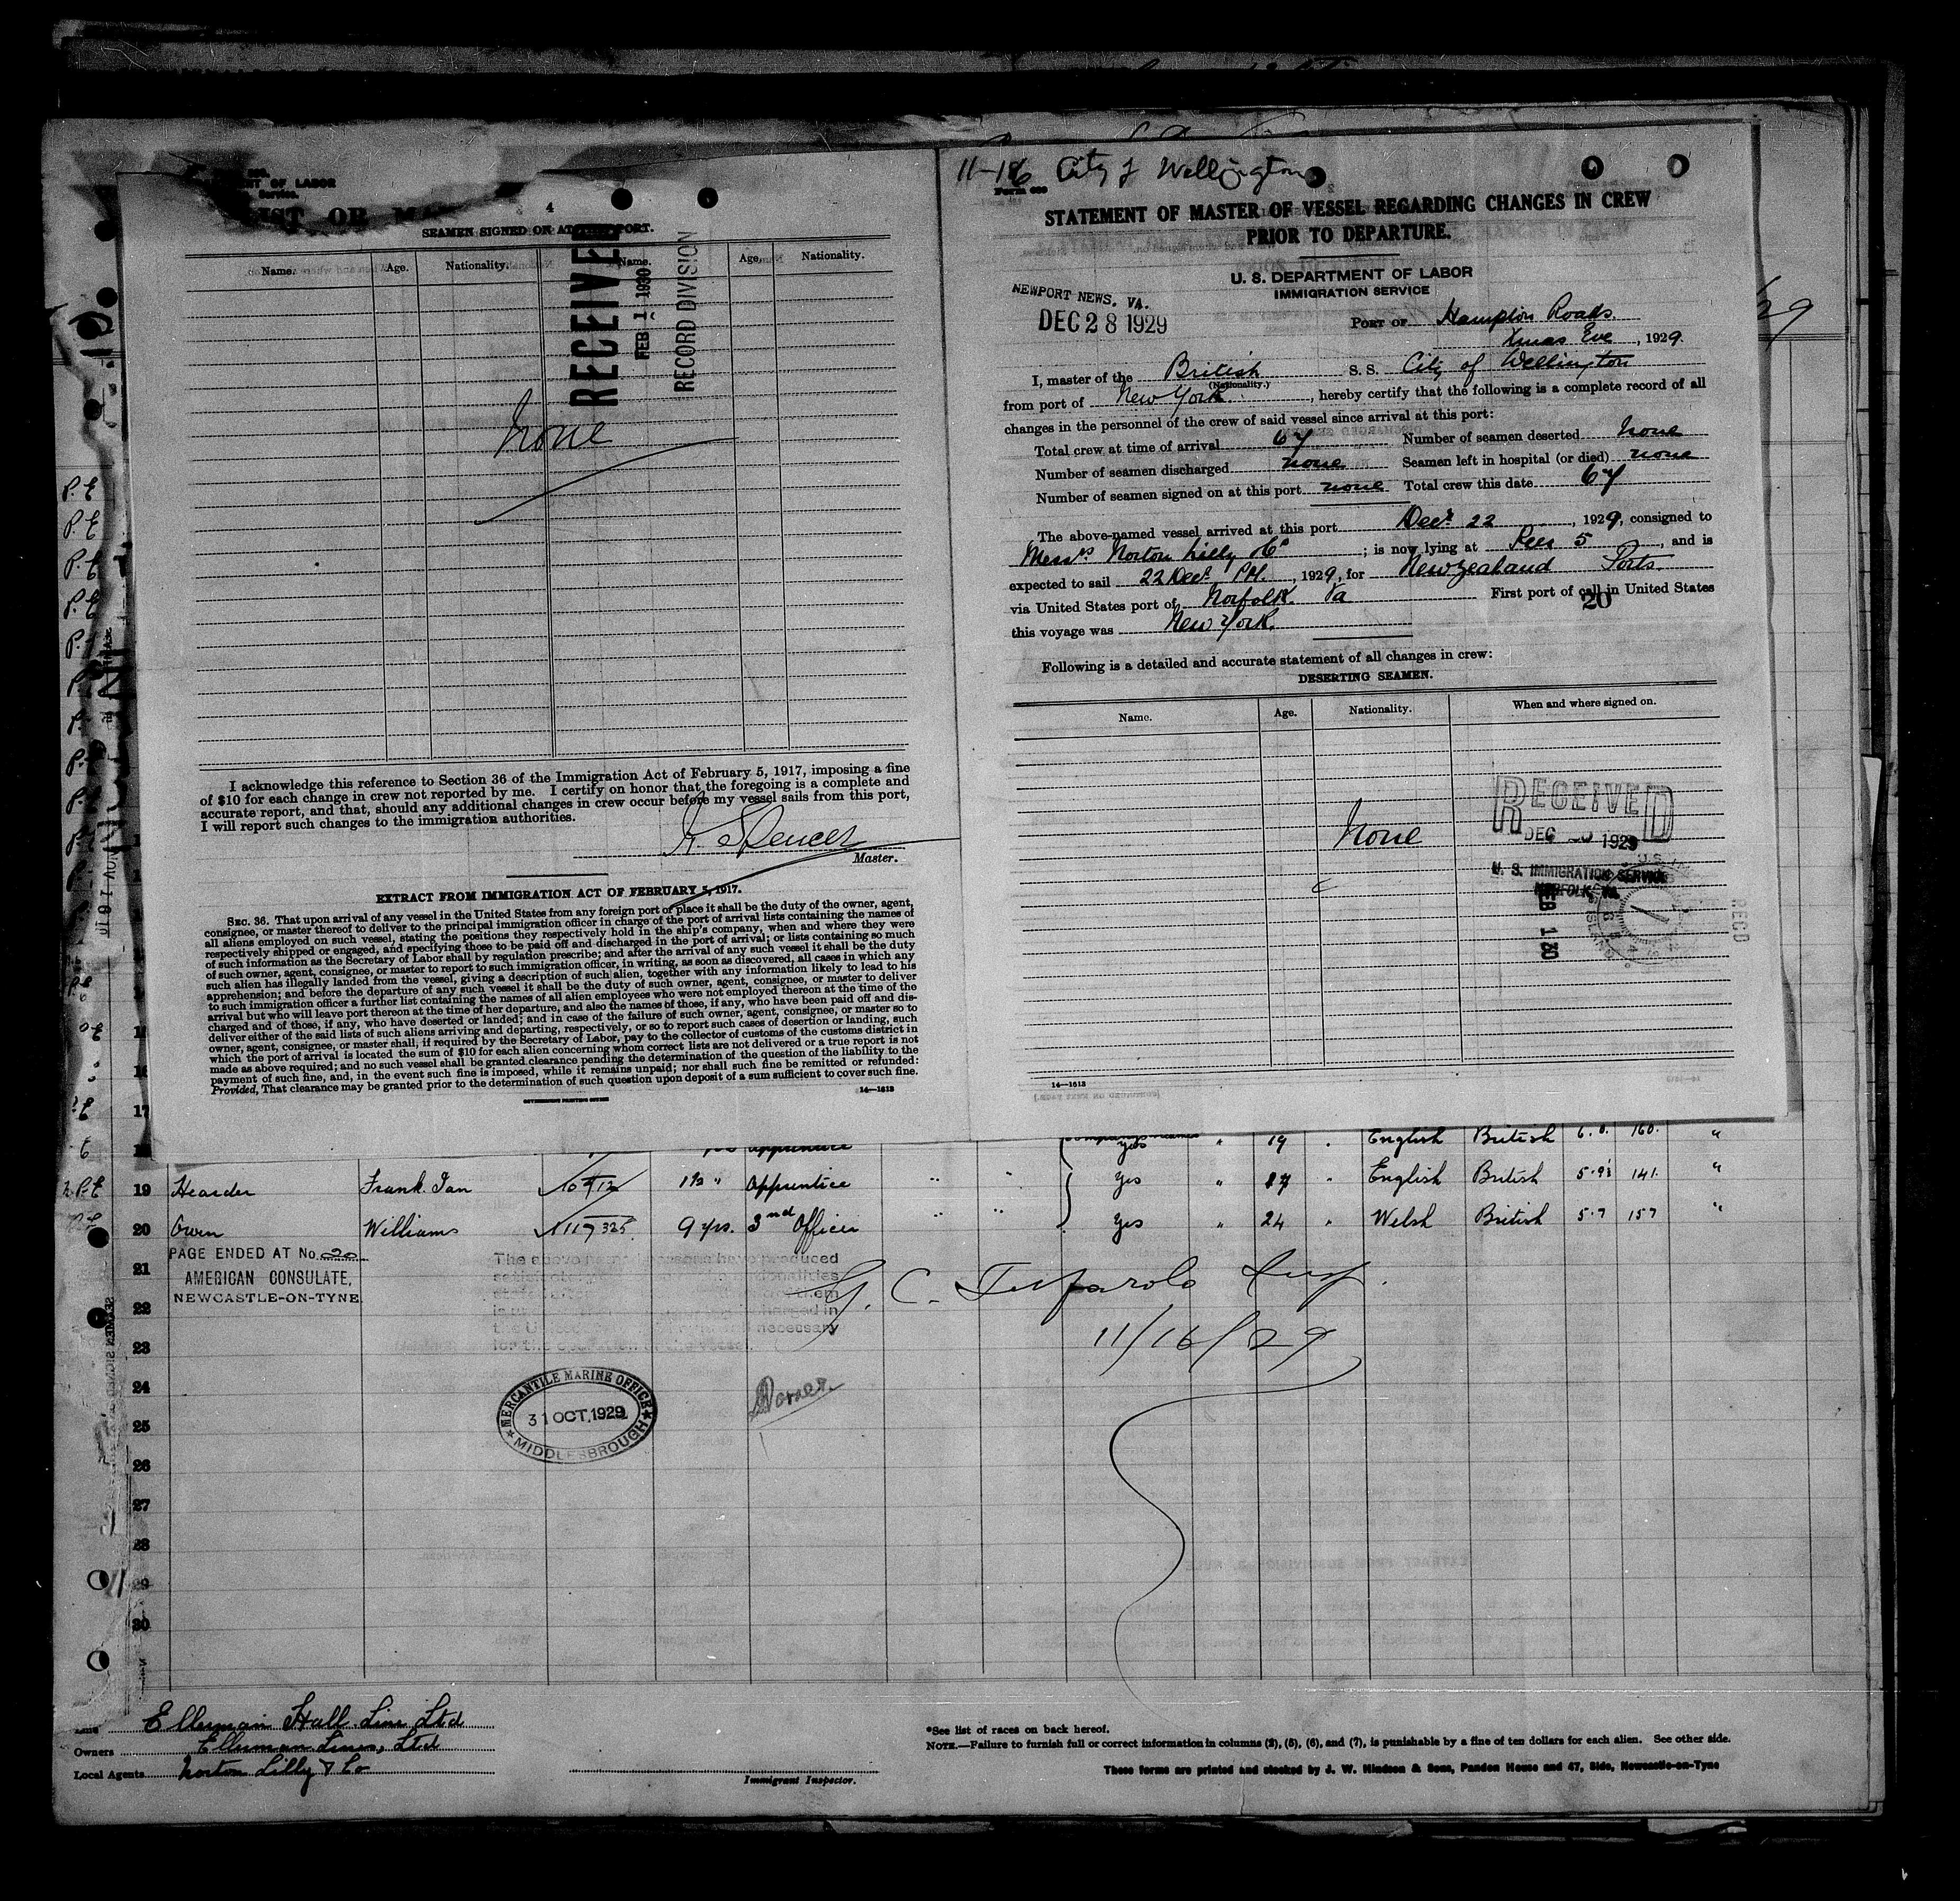 4
SEAMEN SIGNED ON AT THIS PORT.
Name. Age. Nationality. Name. Age. Nationality.
RECEIVED
FEB 1 1930
RECORD DIVISION
None
I acknowledge this reference to Section 36 of the Immigration Act of February 5, 1917, imposing a fine
of $10 for each change in crew not reported by me. I certify on honor that the foregoing is a complete and
accurate report, and that, should any additional changes in crew occur before my vessel sails from this port,
I will report such changes to the immigration authorities.
Spencer
Master.
EXTRACT FROM IMMIGRATION ACT OF FEBRUARY 5, 1917.
SEC. 36. That upon arrival of any vessel in the United States from any foreign port or place it shall be the duty of the owner, agent,
consignee, or master thereof to deliver to the principal immigration officer in charge of the port of arrival lists containing the names of
all aliens employed on such vessel, stating the positions they respectively hold in the ship's company, when and where they were
respectively shipped or engaged, and specifying those to be paid off and discharged in the port of arrival; or lists containing so much
of such information as the Secretary of Labor shall by regulation prescribe; and after the arrival of any such vessel it shall be the duty
of such owner, agent, consignee, or master to report to such immigration officer, in writing, as soon as discovered, all cases in which any
such alien has illegally landed from the vessel, giving a description of such alien, together with any information likely to lead to his
apprehension; and before the departure of any such vessel it shall be the duty of such owner, agent, consignee, or master to deliver
to such immigration officer a further list containing the names of all alien employees who were not employed thereon at the time of the
arrival but who will leave port thereon at the time of her departure, and also the names of those, if any, who have been paid off and dis-
charged and of those, if any, who have deserted or landed; and in case of the failure of such owner, agent, consignee, or master so to
deliver either of the said lists of such aliens arriving and departing, respectively, or so to report such cases of desertion or landing, such
owner, agent, consignee, or master shall, if required by the Secretary of Labor, pay to the collector of customs of the customs district in
which the port of arrival is located the sum of $10 for each alien concerning whom correct lists are not delivered or a true report is not
made as above required; and no such vessel shall be granted clearance pending the determination of the question of the liability to the
payment of such fine, and, in the event such fine is imposed, while it remains unpaid; nor shall such fine be remitted or refunded:
Provided, That clearance may be granted prior to the determination of such question upon deposit of a sum sufficient to cover such fine.
GOVERNMENT PRINTING OFFICE
14—1613
11-16 City of Wellington
STATEMENT OF MASTER OF VESSEL REGARDING CHANGES IN CREW
PRIOR TO DEPARTURE.
U. S. DEPARTMENT OF LABOR
IMMIGRATION SERVICE
NEWPORT NEWS, VA.
DEC 28 1929
PORT OF Hampton Roads.
Xmas Eve, 1929.
I, master of the British S. S. City of Wellington
(Nationality.)
from port of New York, hereby certify that the following is a complete record of all
changes in the personnel of the crew of said vessel since arrival at this port:
Total crew at time of arrival 67 Number of seamen deserted none
Number of seamen discharged none Seamen left in hospital (or died) none
Number of seamen signed on at this port none Total crew this date 67
The above-named vessel arrived at this port Decr 22, 1929, consigned to
Messrs Norton Lilly & Co; is now lying at Pier 5, and is
expected to sail 22 Decr PM., 1929, for New Zealand Ports
via United States port of Norfolk Va First port of call in United States
20
this voyage was New York.
Following is a detailed and accurate statement of all changes in crew:
DESERTING SEAMEN.
Name. Age. Nationality. When and where signed on.
None
RECEIVED
DEC 1929
U. S. IMMIGRATION SERVICE
NORFOLK, VA.
FEB 1 30
RECD
14—1613
apprentice yes " 19 " English British 6.0. 160. "
19 Hearder Frank Ian Apprentice " " yes " 17 " English British 141. "
20 Owen Williams 117325 9 yrs. 3nd Officer " " yes " 24 " Welsh British 5.7 157 "
PAGE ENDED AT No. 20
AMERICAN CONSULATE,
NEWCASTLE-ON-TYNE.
21
22
23
24
25
26
27
28
29
30
11/16/29
MERCANTILE MARINE OFFICE
31 OCT. 1929
MIDDLESBROUGH
Ellerman Hall Line Ltd
Owners Ellerman Lines, Ltd
Local Agents Norton Lilly & Co
Immigrant Inspector.
*See list of races on back hereof.
NOTE.—Failure to furnish full or correct information in columns (2), (5), (6), and (7), is punishable by a fine of ten dollars for each alien. See other side.
These forms are printed and stocked by J. W. Hindson & Sons, Pandon House and 47, Side, Newcastle-on-Tyne